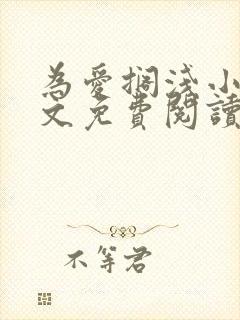 為愛擱淺小
文免費閱讀
不等君